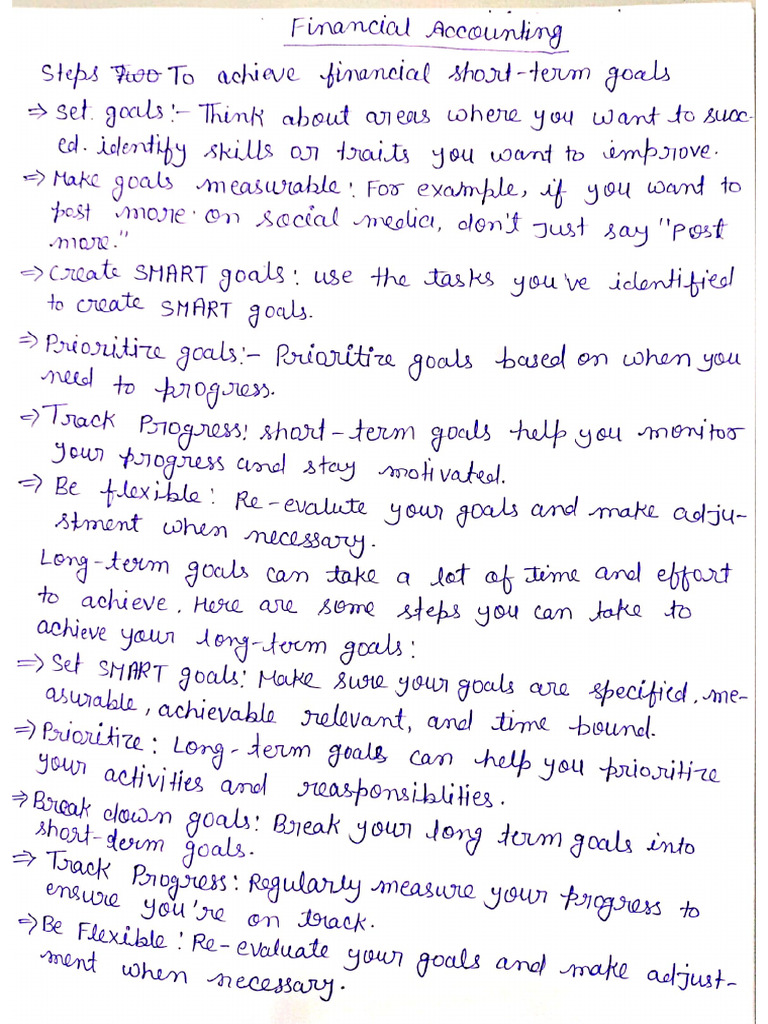 Financial Accounting
Steps Two To achieve financial short-term goals
⇒ Set goals:- Think about areas where you want to succ-
ed. identify skills or traits you want to improve.
⇒ Make goals measurable: For example, if you want to
post more on social media, don't Just say "Post
more."
⇒ Create SMART goals: use the tasks you've identified
to create SMART goals.
⇒ Prioritize goals:- Prioritize goals based on when you
need to progress.
⇒ Track Progress: short-term goals help you monitor
your progress and stay motivated.
⇒ Be flexible: Re-evalute your goals and make adju-
stment when necessary.
Long-term goals can take a lot of time and effort
to achieve. Here are some steps you can take to
achieve your long-term goals:
⇒ Set SMART goals: Make sure your goals are specified, me-
asurable, achievable relevant, and time bound.
⇒ Prioritize: Long-term goals can help you prioritize
your activities and reasponsiblities.
⇒ Break down goals: Break your long term goals into
short-derm goals.
⇒ Track Progress: Regularly measure your progress to
ensure you're on track.
⇒ Be Flexible: Re-evaluate your goals and make adjust-
ment when necessary.